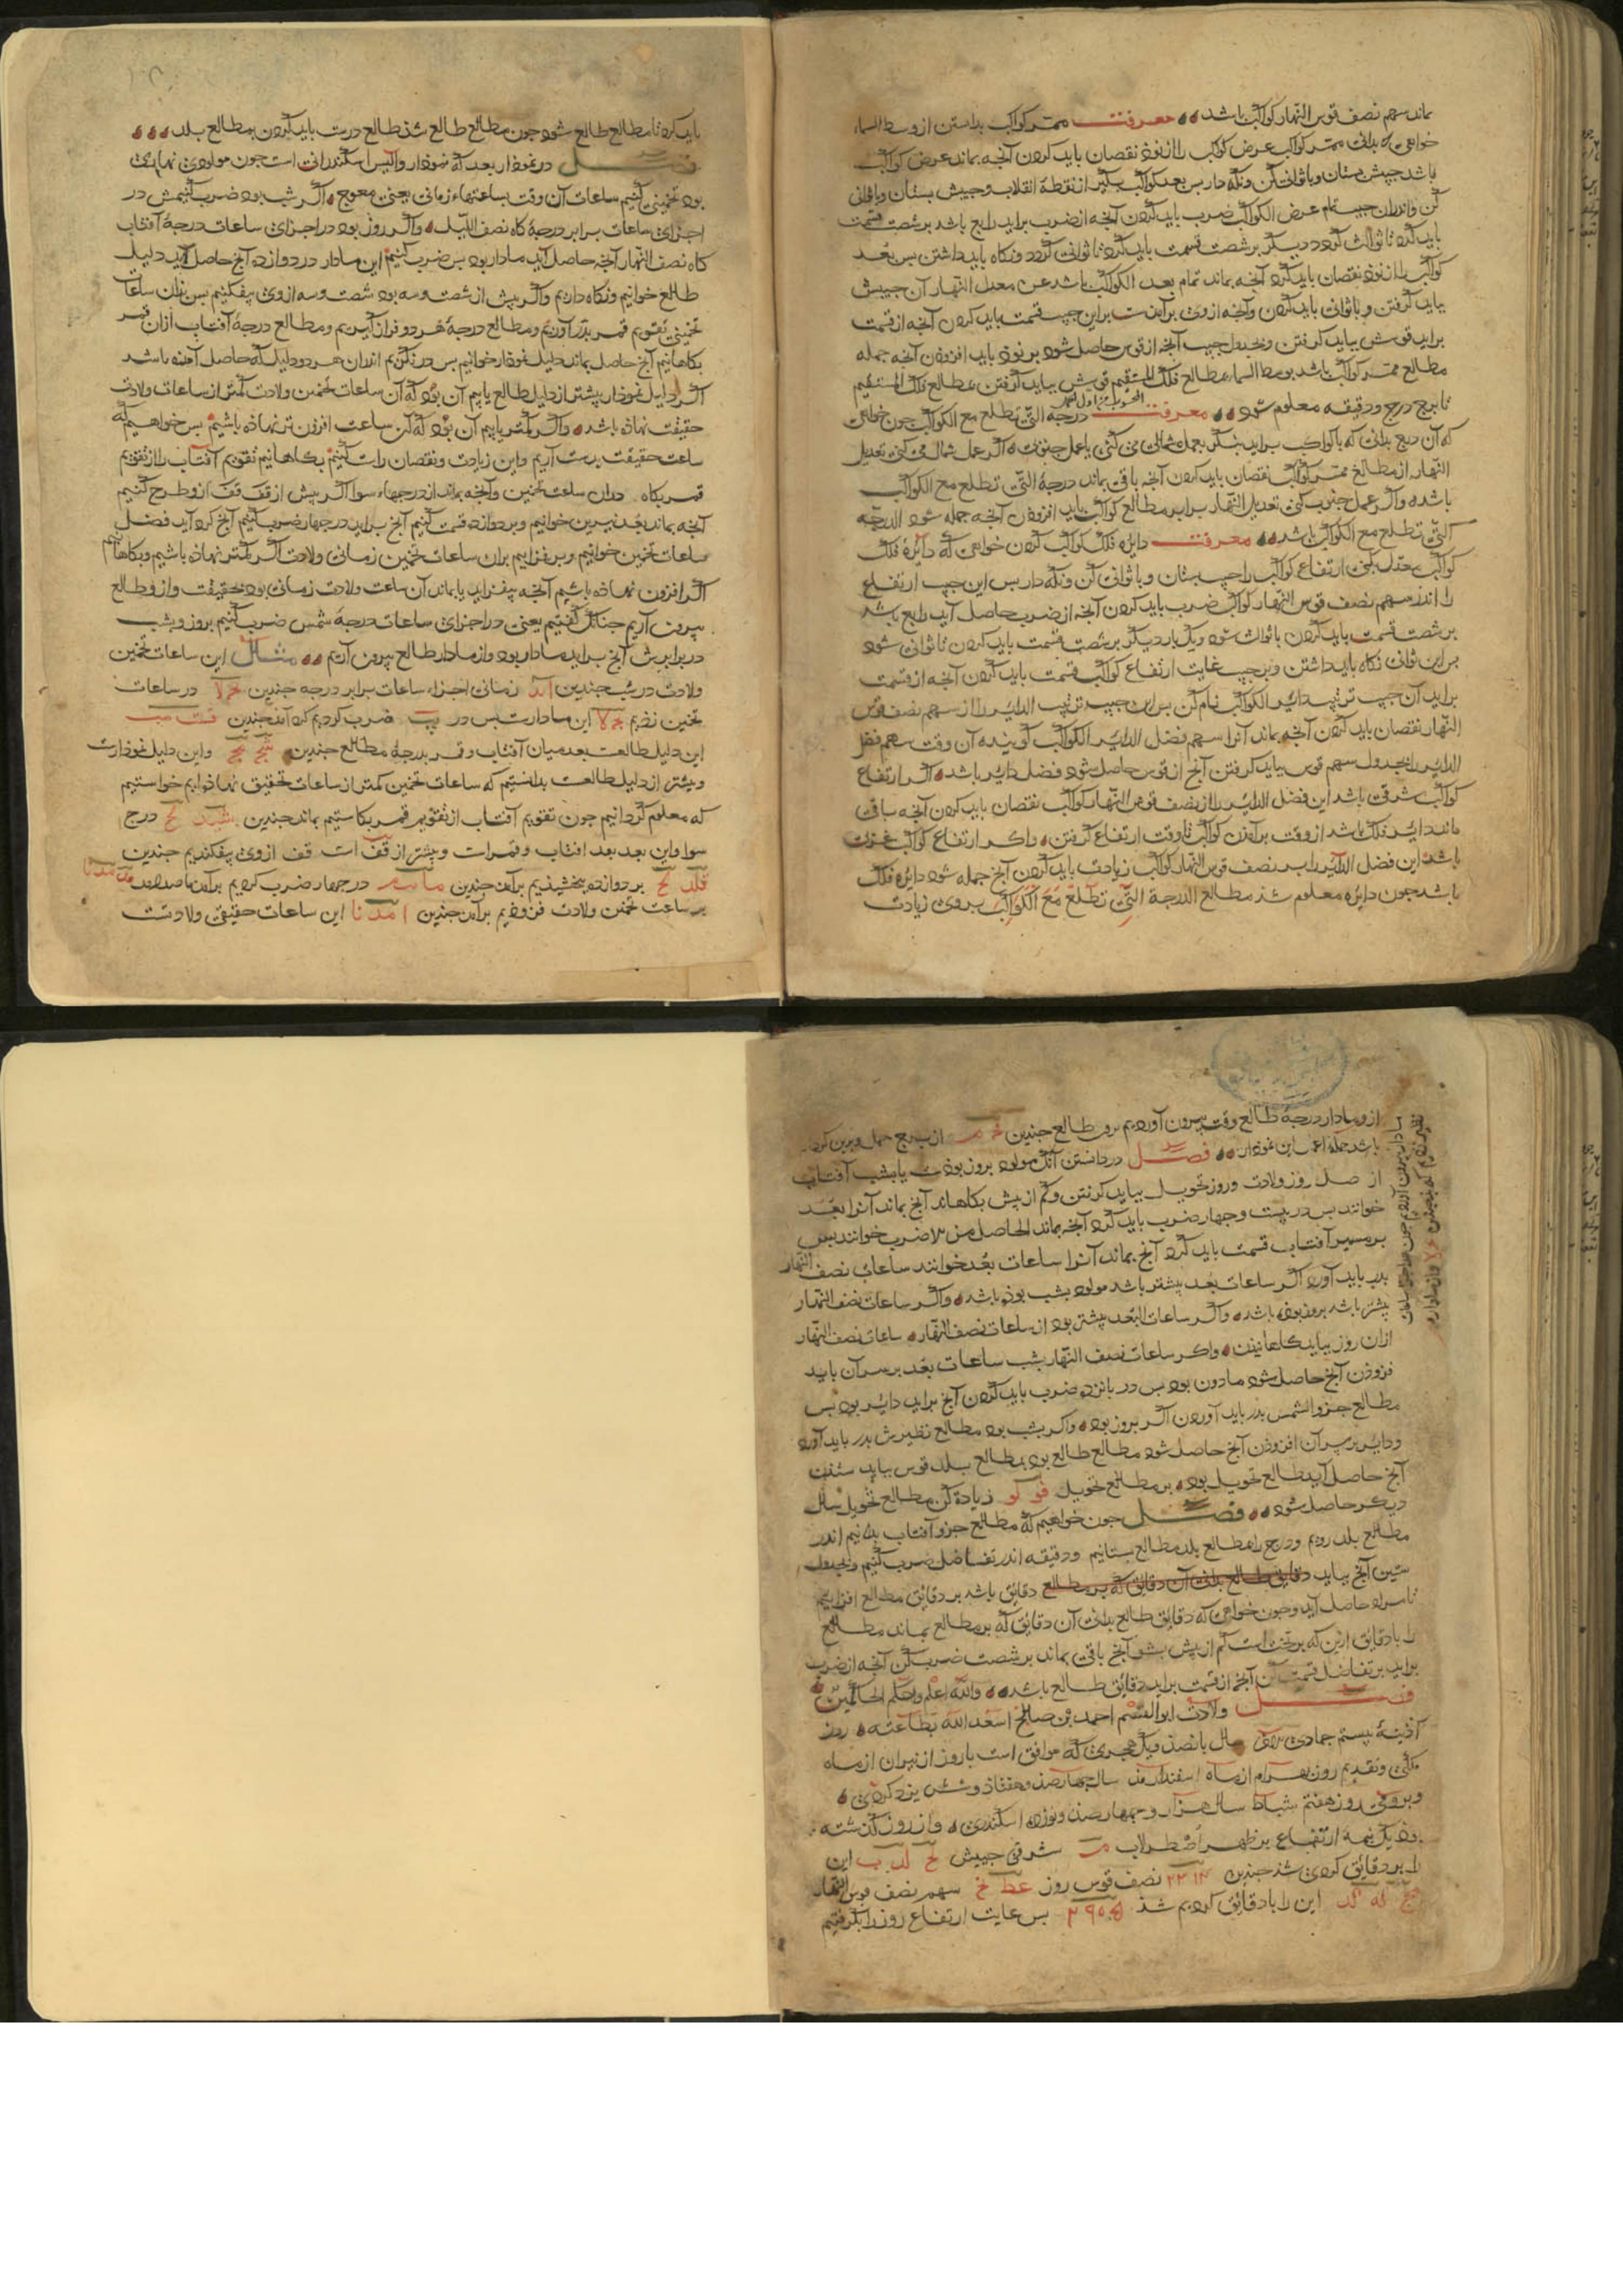 ماند سهم نصف قوس النهار کواکب باشد معرفت ممر کواکب بدانستن از وسط السما
خواهی که بدانی ممر کواکب عرض کوکب را از نوذ نقصان باید کردن آنچه بماند عرض کواکب
باشد جیبش بستان و باثوانی کن ونگه دار بس بعد کواکب بگیر از نقطهٔ انقلاب و جیبش بستان و باثوانی
کن واندران جیب تمام عرض الکواکب ضرب باید کردن آنچه از ضرب براید رابع باشد بر شصت قسمت
باید کرد تا ثوالث گردد دیگر بر شصت قسمت باید کرد تا ثوانی گردد ونگاه باید داشتن بس بعد
کواکب را از نوذ نقصان باید کرد آنچه بماند تمام بعد الکواکب باشد عن معدل النهار آن جیبش
بباید گرفتن و باثوانی باید کردن وآنچه از وی برآمدست براین جیب قسمت باید کردن آنچه از قسمت
براید قوسش بباید گرفتن وبجدول جیب آنچه از قوس حاصل شود بر نوذ باید افزودن آنچه جمله
مطالع ممر کواکب باشد بوسط السماء مطالع فلک المستقیم قوسش بباید گرفتن بمطالع فلک المستقیم
تا برج درج ودقیقه معلوم شود معرفت درجة التی تطلع مع الکواکب چون خواهی
که آن درج بدانی که با کواکب براید بنگر بعمل شمالی می کنی یا عمل جنوبی اگر عمل شمال می کنی تعدیل
النهار از مطالع ممر کواکب نقصان باید کردن آنچه باقی بماند درجة التی تطلع مع الکواکب
باشد واگر عمل جنوب کنی تعدیل النهار برابر مطالع کواکب باید افزودن آنچه جمله شود الدرجه
التی تطلع مع الکواکب باشد معرفت دایرهٔ فلک کواکب کردن خواهی که دایرهٔ فلک
کواکب بعمل کنی ارتفاع کواکب را جیب بستان وباثوانی کن ونگه دار بس این جیب ارتفاع
را اندر سهم نصف قوس النهار کواکب ضرب باید کردن آنچه از ضرب حاصل آید رابع باشد
بر شصت قسمت باید کردن باثوالث شود ویک بار دیگر بر شصت قسمت باید کردن تا ثوانی شود
بس این ثوانی نگاه باید داشتن وبر جیب غایت ارتفاع کواکب قسمت باید کردن آنچه از قسمت
براید آن جیب ترتیب دایر الکواکب نام کن بس این جیب ترتیب الدایر را از سهم نصف قوس
النهار نقصان باید کردن آنچه بماند آنرا سهم فضل الدایر الکواکب گویند آن وقت سهم فضل
الدایر را بجدول سهم قوس بباید گرفتن آنچ از قوس حاصل شود فضل دایر باشد اگر ارتفاع
کواکب شرقی باشد این فضل الدایر را از نصف قوس النهار کواکب نقصان باید کردن آنچه باقی
ماند دایر فلک باشد از وقت برآمدن کواکب تا وقت ارتفاع گرفتن واگر ارتفاع کواکب غربی
باشد این فضل الدایر را بر نصف قوس النهار کواکب زیادت باید کردن آنچ جمله شود دایره فلک
باشد چون دایره معلوم شد مطالع الدرجة التی تطلع مع الکواکب بروی زیادت
باید کرد تا مطالع طالع شود چون مطالع طالع شد طالع درست باید کردن بمطالع بلد
فصل در نموذار بعد که نموذار والیس اسکندرانی است چون مولودی نهاری
بود تخمینی کنیم ساعات آن وقت بساعتهاء زمانی یعنی معوج واگر شب بود ضرب کنیمش در
اجزای ساعات برابر درجهٔ کاه نصف اللیل واگر روز بود در اجزای ساعات درجهٔ آفتاب
کاه نصف النهار آنچه حاصل آید مادار بود بس ضرب کنیم این مادار در دوازده آنچ حاصل آید دلیل
طالع خوانیم ونگاه داریم واگر بیش از شصت وسه بود شصت وسه از وی بیفکنیم بس بذان ساعات
تخمینی تقویم قمر بدر آوریم ومطالع درجهٔ هر دو فراز گیریم ومطالع درجهٔ آفتاب از آن قمر
بکاهانیم آنچ حاصل بماند دلیل نموذار خوانیم بس در نگریم اندران هر دو دلیل که حاصل آمده باشد
اگر دلیل نموذار بیشتر از دلیل طالع یابیم آن بود که آن ساعات تخمین ولادت کمتر از ساعات ولادت
حقیقت نهاذه باشد واگر کمتر یابیم آن بود که آن ساعت افزون تر نهاذه باشیم بس خواهیم که
ساعت حقیقت بدست آریم واین زیادت ونقصان راست کنیم بکاهانیم تقویم آفتاب را از تقویم
قمر بکاه بدان ساعت تخمین وآنچه بماند از درجهاء سوا اگر بیش از قف قف ازو طرح کنیم
آنچه بماند بعد نیرین خوانیم وبر دوازده قسمت کنیم آنچ براید در چهار ضرب کنیم آنچ گرد آید فضل
ساعات تخمین خوانیم وبر فزاییم بران ساعات تخمین زمانی ولادت اگر کمتر نهاذه باشیم وبکاهانیم
اگر افزون نهاذه باشیم آنچه بیفزاید یا بماند آن ساعت ولادت زمانی بود بحقیقت وازو طالع
بیرون آریم چنانک گفتیم یعنی در اجزای ساعات درجهٔ شمس ضرب کنیم بروز وبشب
در برابرش آنچ براید مادار بود واز مادار طالع بیرون آریم مثال این ساعات تخمین
ولادت در شب چندین زمانی اجزاء ساعات برابر درجه چندین در ساعات
تخمین زدیم این مادارست بس در یب ضرب کردیم گرد آمد چندین
این دلیل طالعست بعد میان آفتاب وقمر بدرجهٔ مطالع چندین واین دلیل نموذارست
وبیشتر از دلیل طالعست بدانستیم که ساعات تخمین کمتر از ساعات تحقیق نهاذه ایم خواستیم
که معلوم گردانیم چون تقویم آفتاب از تقویم قمر بکاستیم بماند چندین درج
سوا واین بعد بعد آفتاب وقمرست وبیشتر از قف است قف از وی بیفکندیم چندین
بر دوازده ببخشیدیم برآمد چندین در چهار ضرب کردیم برآمد
بر ساعت تخمین ولادت فزودیم برآمد چندین این ساعات حقیقی ولادتست
ازو مادار درجهٔ طالع وقت بیرون آوردیم طالع چندین از برج حمل
باشد جملهٔ اعمال این نموذار فصل در دانستن آنک مولود بروز بودست یا بشب آفتاب
از اصل روز ولادت وروز تحویل بباید گرفتن وکم از بیش بکاهاند آنچ بماند آنرا بعد
خوانند بس در بیست وچهار ضرب باید کرد آنچه بماند الحاصل من هذا ضرب خوانند بس
بر مسیر آفتاب قسمت باید کرد آنچ بماند آنرا ساعات بعد خوانند ساعات نصف النهار
بدر باید آورد اگر ساعات بعد بیشتر باشد مولود بشب بوذه باشد واگر ساعات نصف النهار
بیشتر باشد بروز بوذه باشد واگر ساعات البعد بیشتر بود از ساعات نصف النهار ساعات نصف النهار
از آن روز بباید کاهانیدن واگر ساعات نصف النهار بشب ساعات بعد بر سر آن باید
فزوذن آنچ حاصل شود مادون بود بس در پانزده ضرب باید کردن آنچ براید دایر بود بس
مطالع جزو الشمس بدر باید آوردن اگر بروز بود واگر بشب بود مطالع نظیرش بدر باید آورد
ودایر بر سر آن افزوذن آنچ حاصل شود مطالع طالع بود بمطالع بلد قوس بباید ستدن
آنچ حاصل آید طالع تحویل بود بر مطالع تحویل فو کو زیاده کن مطالع تحویل سال
دیگر حاصل شود فصل چون خواهیم که مطالع جزو آفتاب بدانیم اندر
مطالع بلد رویم ودرج را مطالع بلد مطالع بستانیم ودقیقه اندر تفاضل ضرب کنیم وبجدول
ستین آنچ بیاید دقایق طالع بدانی آن دقایق که بر مطالع دقایق باشد بر دقایق مطالع افزاییم
تا مراد حاصل آید وچون خواهی که دقایق طالع بدانی آن دقایق که بر مطالع بماند مطالع
را با دقایق ازین که بر تخت است کم از بیش بشو آنچ باقی بماند بر شصت ضرب کن آنچه از ضرب
براید بر تفاضل قسمت کن آنچه از قسمت براید دقایق طالع باشد والله اعلم واحکم الحاکمین
فصل ولادت ابو القسم احمد بن صالح اسعد الله بطاعته روز
آذینهٔ بیستم جمادی سال بانصذ ویک هجری که موافق است با روز انیران از ماه
ملکی وتقدیم روز بهرام از ماه اسفندارمذ سال چهارصذ وهفتاذ وشش یزدگردی
وبرومی روز هفتم شباط سال هزار وچهارصذ ونوزده اسکندری واز روز گذشته
بوذ یک نیمه ارتفاع بر ظهر اصطرلاب شرقی جیبش لح لد ب این
را بر دقایق کردی شد چندین نصف قوس روز عط سهم نصف قوس النهار
این را با دقایق کردیم شذ بس غایت ارتفاع روز را بگرفتیم